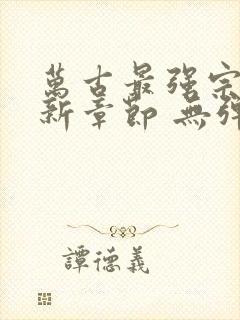 萬古最强宗
新章節 無彈
譚德義